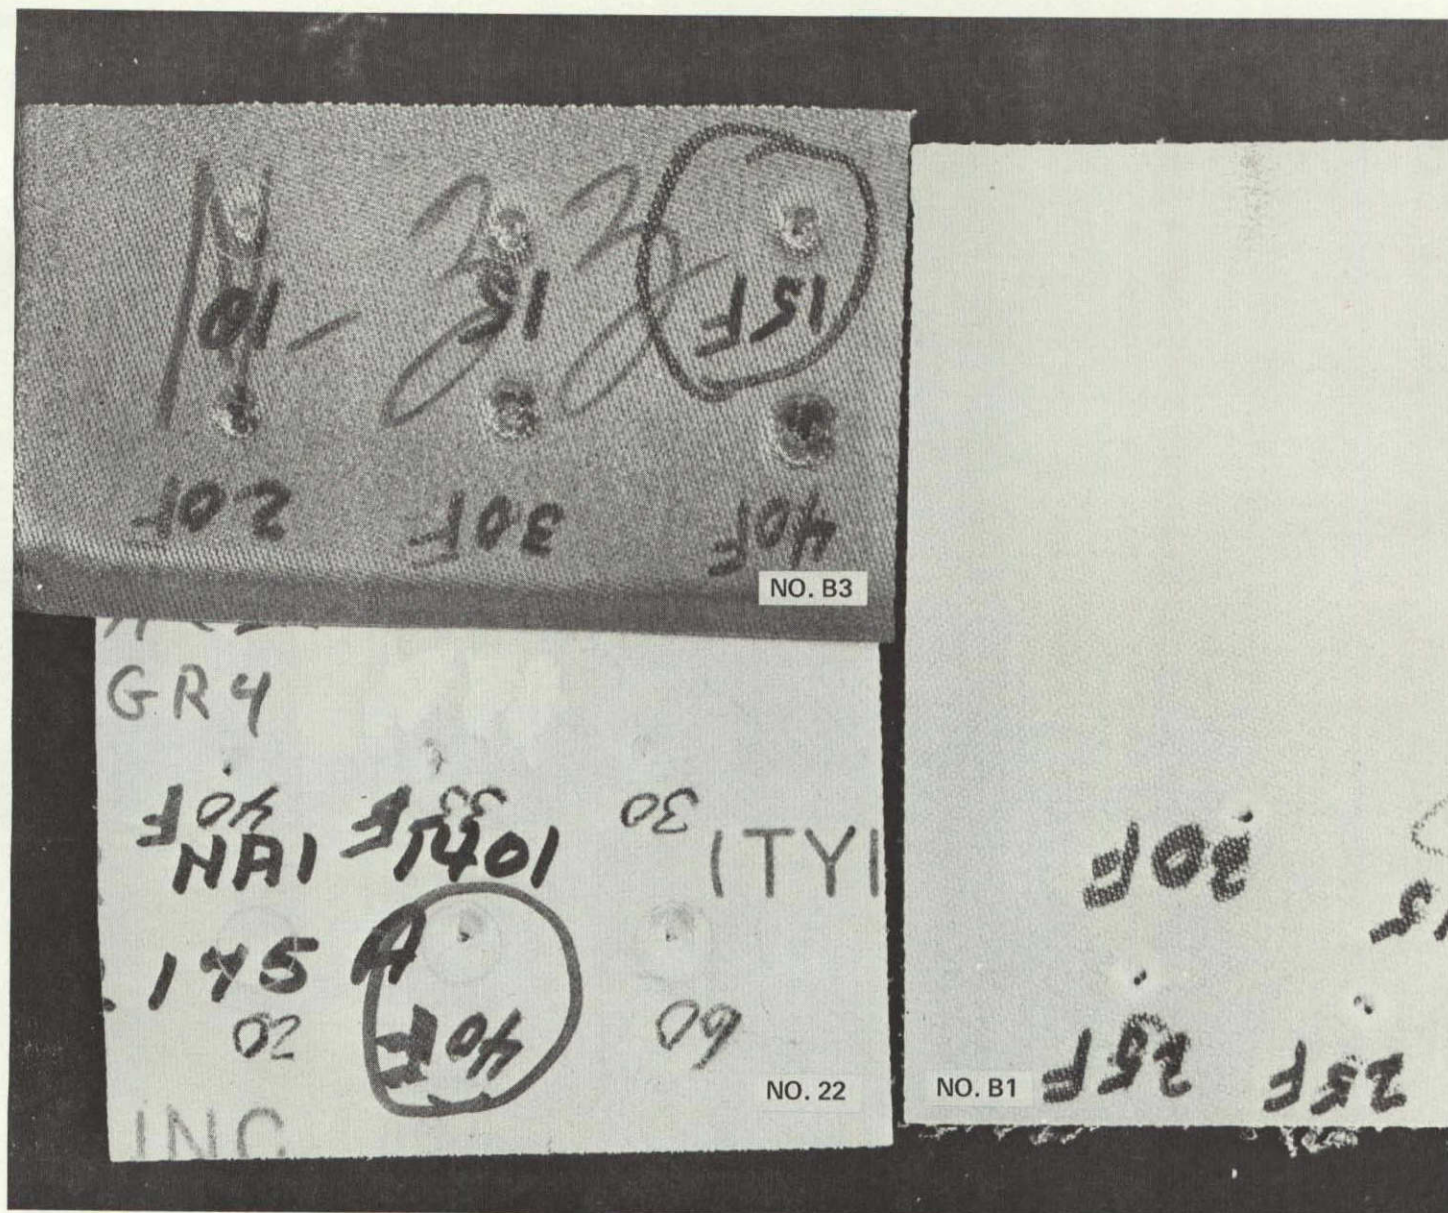 10 15 15F
20F 30F 40F
NO. B3
GR4
40F 33F 30
NA1 1401 ITYI
175 A
20 40F 60
NO. 22
INC
20F
15
NO. B1 25F 25F